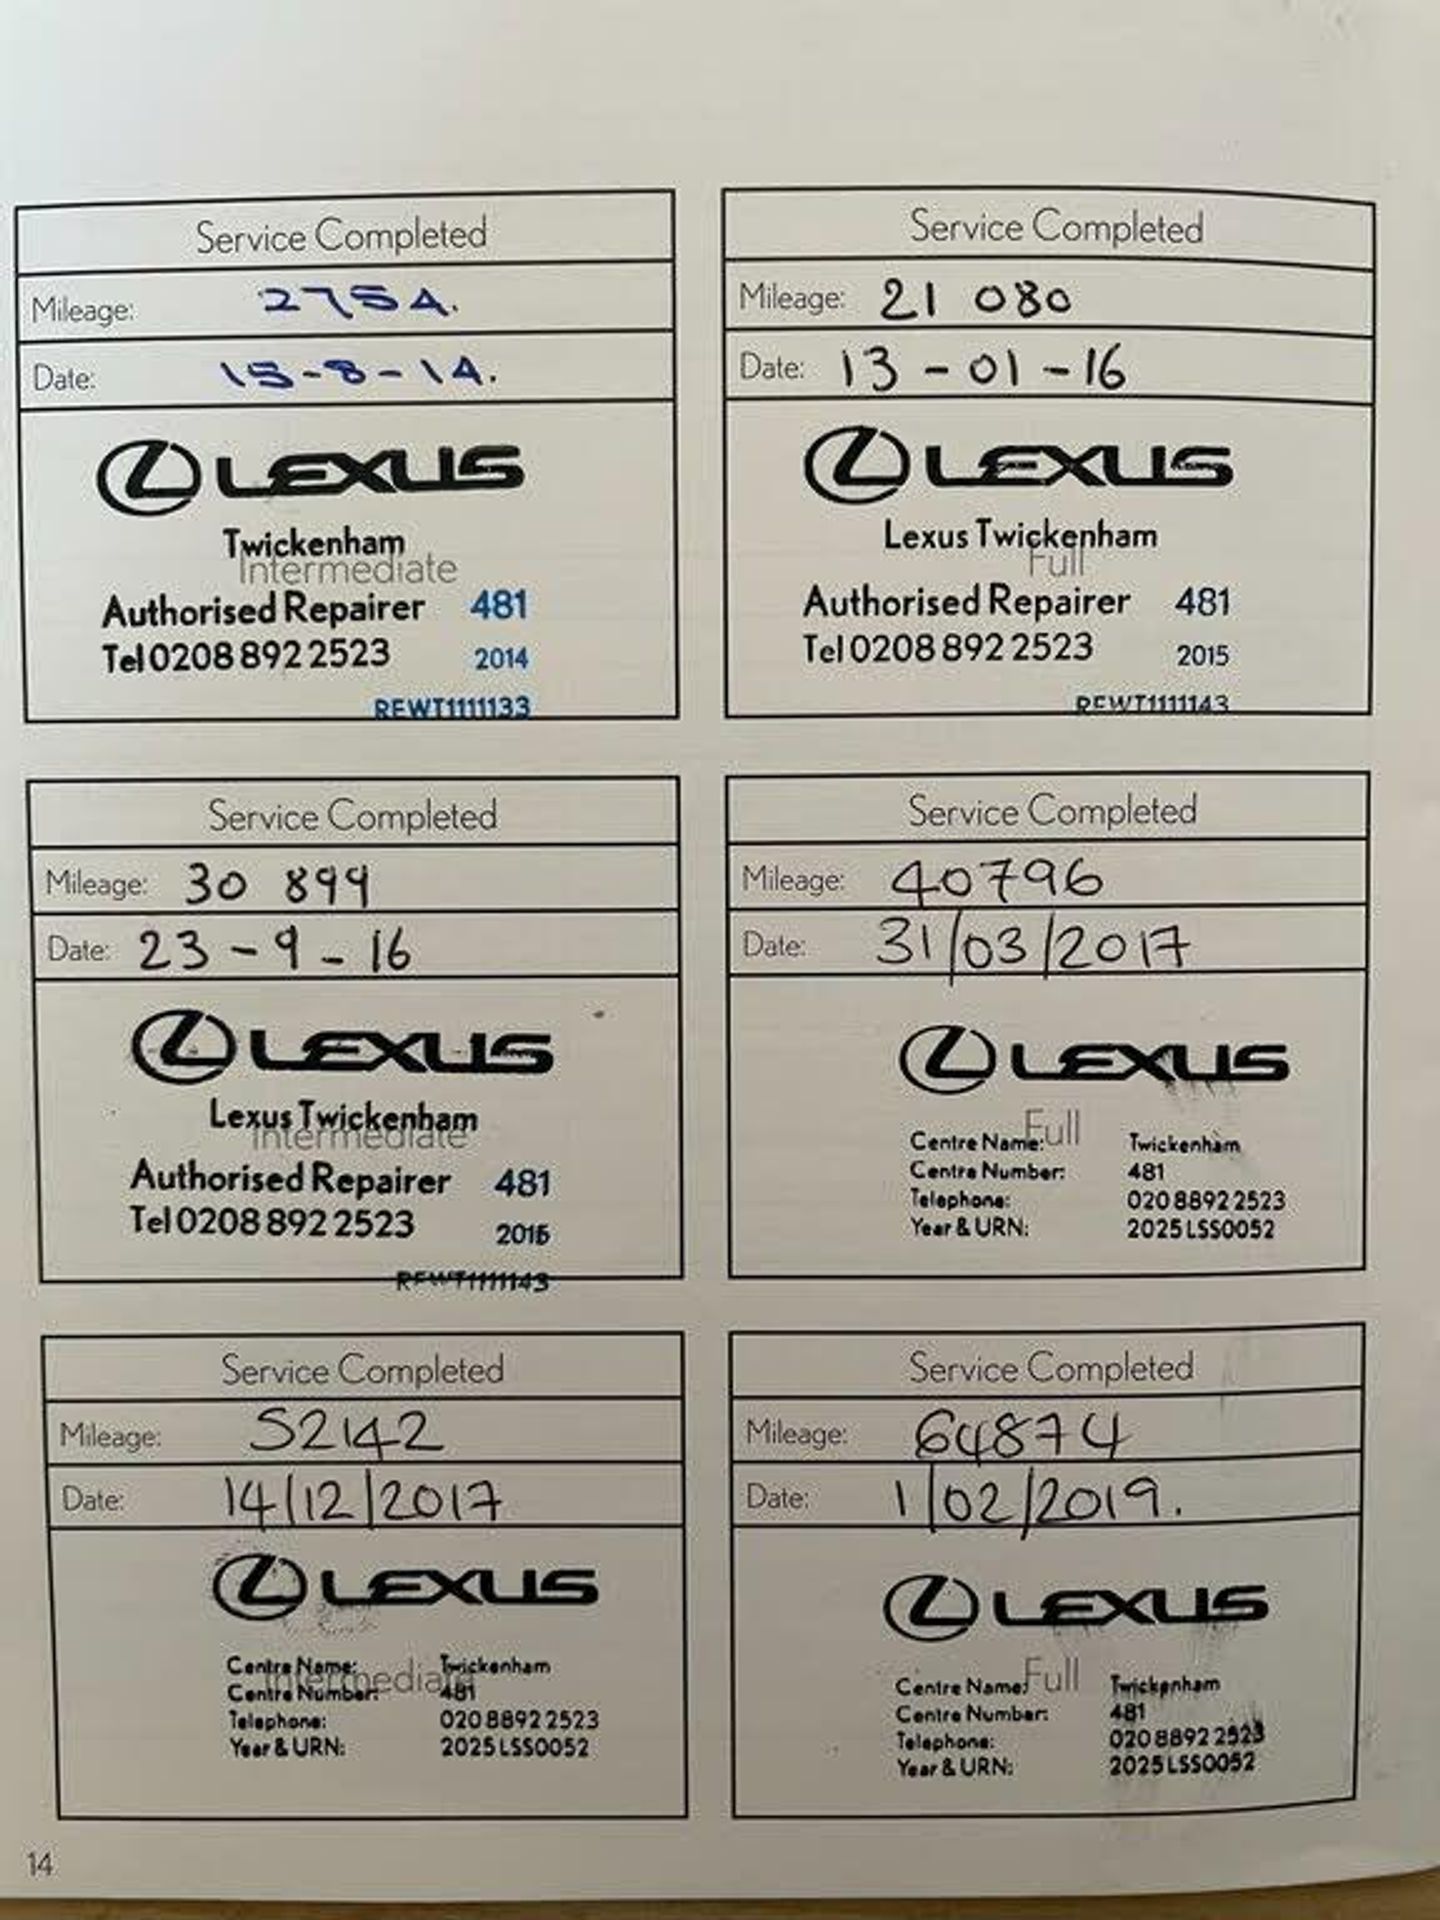 Service Completed
Mileage: 2754.
Date: 15-8-14.
LEXUS
Twickenham
Intermediate
Authorised Repairer 481
Tel 0208 892 2523 2014
REWT1111133
Service Completed
Mileage: 21 080
Date: 13-01-16
LEXUS
Lexus Twickenham
Full
Authorised Repairer 481
Tel 0208 892 2523 2015
REWT1111143
Service Completed
Mileage: 30 899
Date: 23-9-16
LEXUS
Lexus Twickenham
Intermediate
Authorised Repairer 481
Tel 0208 892 2523
REWT1111143
Service Completed
Mileage: 40796
Date: 31/03/2017
LEXUS
Full
Centre Name: Twickenham
Centre Number: 481
Telephone: 020 8892 2523
Year & URN: 2025 LSS0052
Service Completed
Mileage: 52142
Date: 14/12/2017
LEXUS
Intermediate
Centre Name: Twickenham
Centre Number: 481
Telephone: 020 8892 2523
Year & URN: 2025 LSS0052
Service Completed
Mileage: 64874
Date: 1/02/2019.
LEXUS
Full
Centre Name: Twickenham
Centre Number: 481
Telephone: 020 8892 2523
Year & URN: 2025 LSS0052
14